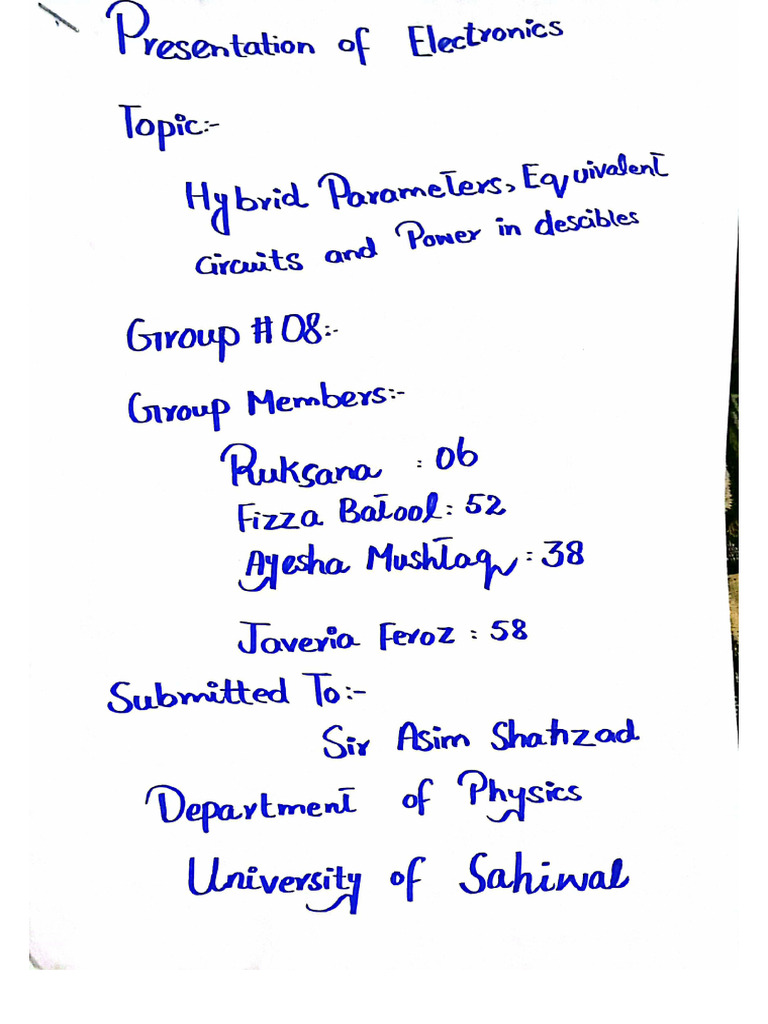 Presentation of Electronics
Topic:-
Hybrid Parameters, Equivalent
circuits and Power in descibles
Group # 08:-
Group Members:-
Ruksana : 06
Fizza Batool : 52
Ayesha Mushtaq : 38
Javeria Feroz : 58
Submitted To:-
Sir Asim Shahzad
Department of Physics
University of Sahiwal